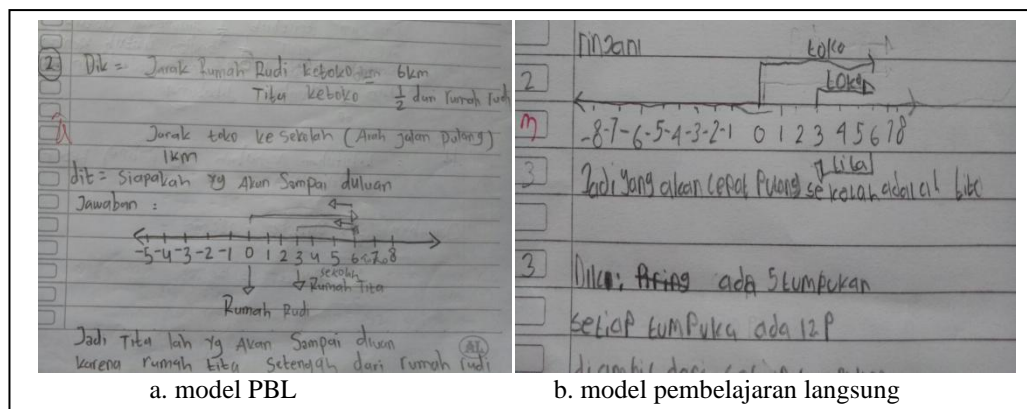 2. Dik = Jarak Rumah Rudi ketoko 6km
Tita ketoko 1/2 dari rumah rudi
Jarak toko ke sekolah (Arah jalan pulang)
1km
dit = Siapakah yg Akan Sampai duluan
Jawaban :
-5 -4 -3 -2 -1 0 1 2 3 4 5 6 7 8
sekolah
Rumah Tita
Rumah Rudi
Jadi Tita lah yg Akan Sampai dluan
karena rumah tita setengah dari rumah rudi
a. model PBL
rinjani
toko
2
toko
-8 -7 -6 -5 -4 -3 -2 -1 0 1 2 3 4 5 6 7 8
3
Jadi yang akan cepat Pulang sekolah adalal
3
Dik : ada 5 tumpukan
setiap tumpuka ada 12 P
b. model pembelajaran langsung